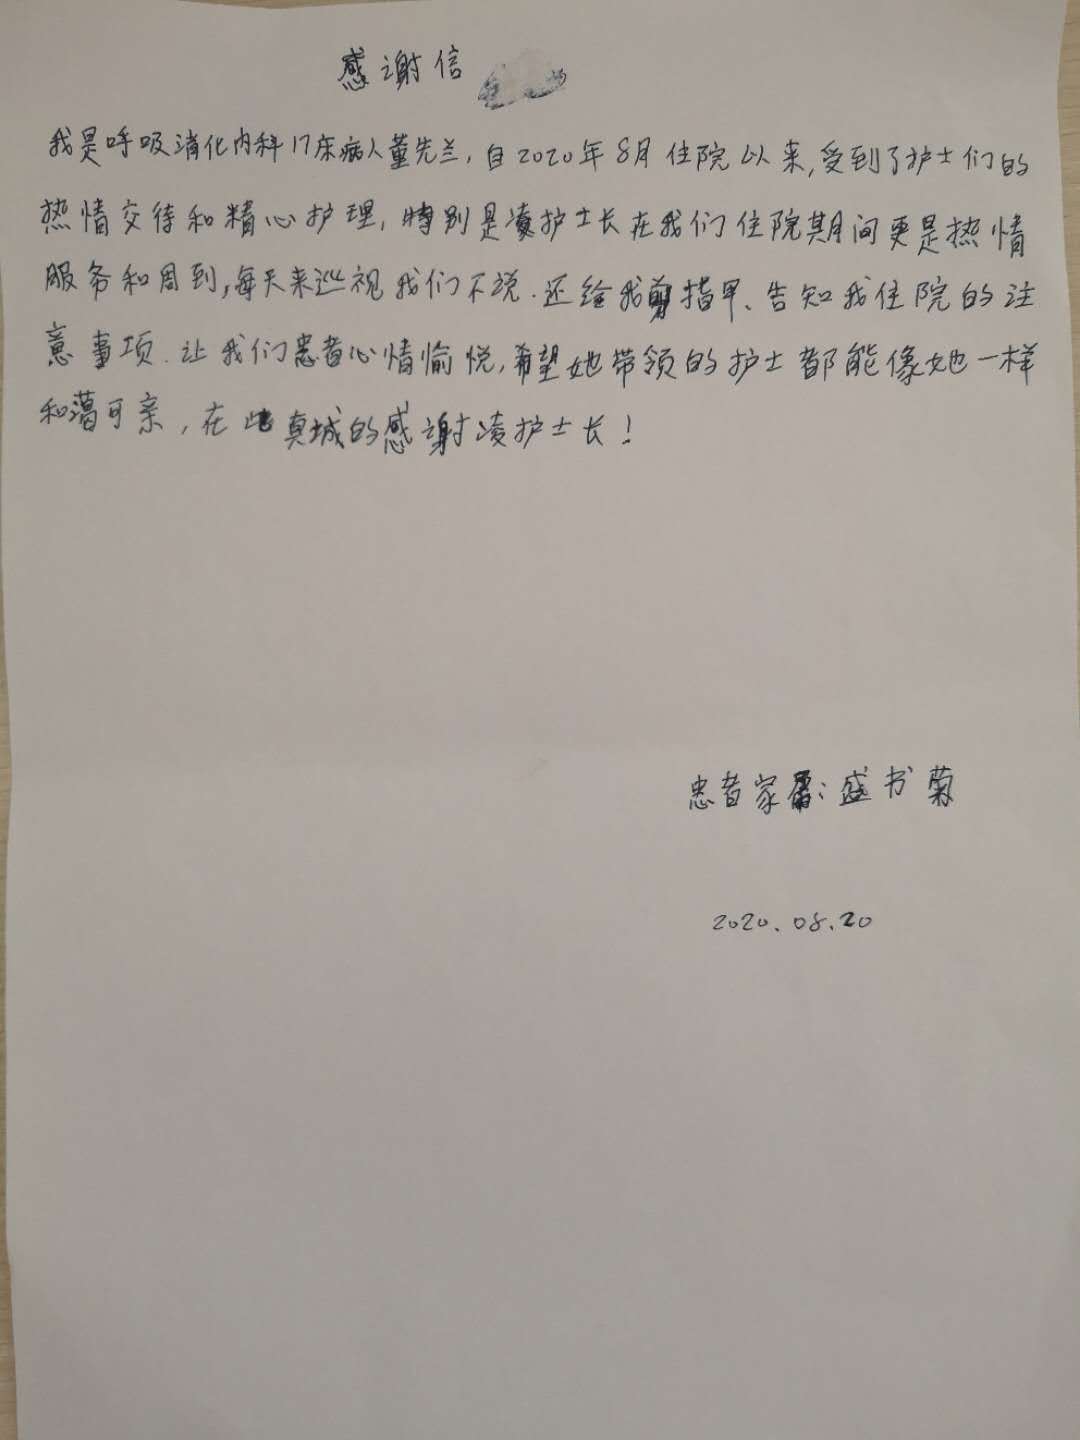 感谢信
我是呼吸消化内科17床病人董先兰，自2020年8月住院以来,受到了护士们的
热情交待和精心护理，特别是凌护士长在我们住院期间更是热情
服务和周到,每天来巡视我们不说.还给我剪指甲、告知我住院的注
意事项.让我们患者心情愉悦,希望她带领的护士都能像她一样
和蔼可亲，在此真城的感谢凌护士长！
患者家属：盛书菊
2020.08.20